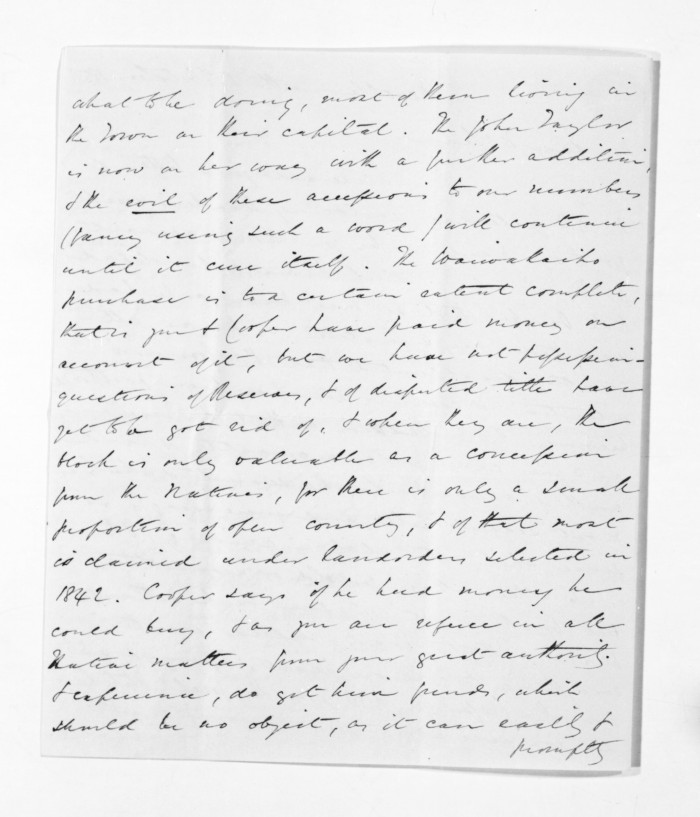 what to be doing, most of them living in
the Town on their capital. The John Taylor
is now on her way with a further addition,
& the evil of these accessions to our numbers
(fancy using such a word) will continue
until it cure itself. The Waiwakaiho
purchase is to a certain extent complete,
that is you & Cooper have paid money on
account of it, but we have not possession -
questions of Reserves, & of disputed title have
yet to be got rid of, & when they are, the
block is only valuable as a concession
from the Natives, for there is only a small
proportion of open country, & of that most
is claimed under landorders selected in
1842. Cooper says if he had money he
could buy, & as you are in all
Native matters from your great authority
& experience, do get him funds, which
should be no object, as it can easily &
promptly